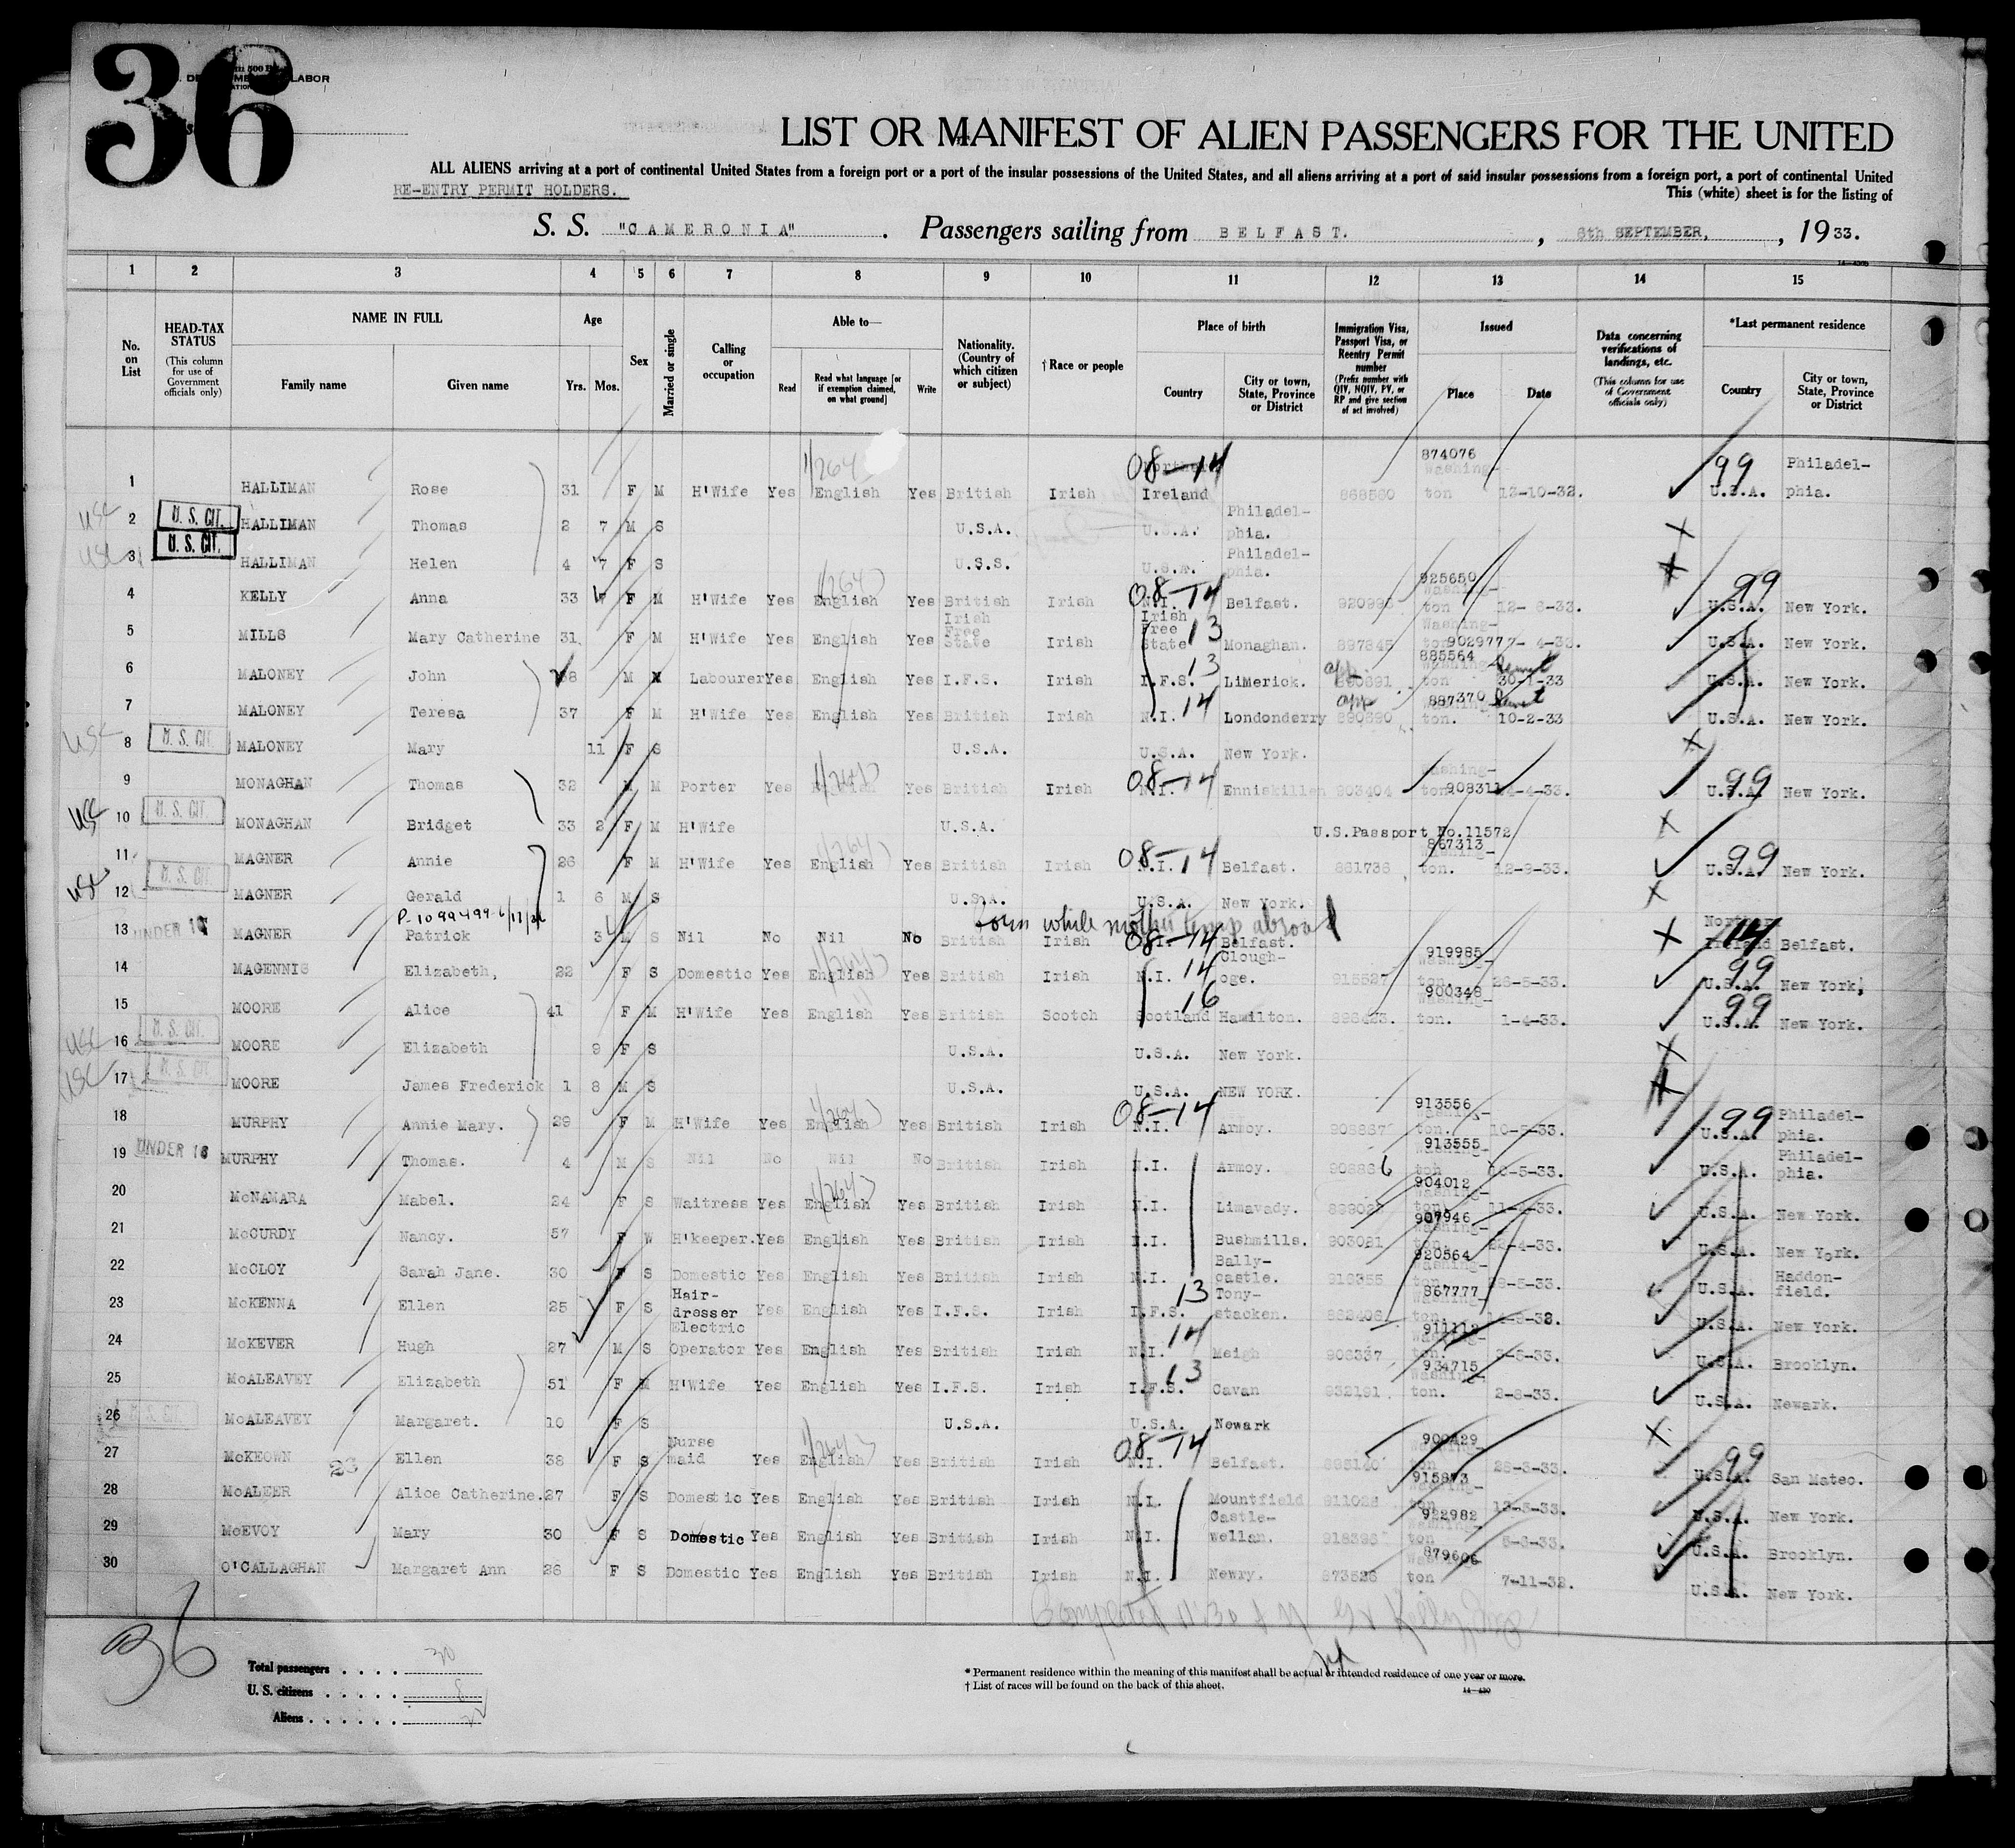 36
LIST OR MANIFEST OF ALIEN PASSENGERS FOR THE UNITED
ALL ALIENS arriving at a port of continental United States from a foreign port or a port of the insular possessions of the United States, and all aliens arriving at a port of said insular possessions from a foreign port, a port of continental United
RE-ENTRY PERMIT HOLDERS. This (white) sheet is for the listing of
S. S. "CAMERONIA". Passengers sailing from BELFAST., 6th SEPTEMBER, , 1933.
1 2 3 4 5 6 7 8 9 10 11 12 13 14 15
No. on List
HEAD-TAX STATUS
(This column for use of Government officials only)
NAME IN FULL
Family name Given name
Age
Yrs. Mos.
Sex
Married or single
Calling or occupation
Able to—
Read Read what language [or if exemption claimed, on what ground] Write
Nationality. (Country of which citizen or subject)
† Race or people
Place of birth
Country City or town, State, Province or District
Immigration Visa, Passport Visa, or Reentry Permit number
(Prefix number with QIV, NQIV, PV, or RP and give section of act involved)
Issued
Place Date
Data concerning verifications of landings, etc.
(This column for use of Government officials only)
*Last permanent residence
Country City or town, State, Province or District
1 HALLIMAN Rose 31 F M H'Wife Yes English Yes British Irish Ireland 868560 874076 Washington 13-10-32. 99 U.S.A. Philadelphia.
USC 2 U. S. CIT. HALLIMAN Thomas 2 7 M S U.S.A. U.S.A. Philadelphia.
USC 3 U. S. CIT. HALLIMAN Helen 4 7 F S U.S.S. U.S.A. Philadelphia.
4 KELLY Anna 33 F M H'Wife Yes English Yes British Irish 08-14 N.I. Belfast. 925650 Washington 12- 6-33. 99 U.S.A. New York.
5 MILLS Mary Catherine 31 F M H'Wife Yes English Yes Irish Free State Irish Irish Free State 13 Monaghan. 897845 Washington 902977 7- 4-33. U.S.A. New York.
6 MALONEY John 38 M M Labourer Yes English Yes I.F.S. Irish I.F.S. 13 Limerick. 885564 Washington 30-1-33 U.S.A. New York.
7 MALONEY Teresa 37 F M H'Wife Yes English Yes British Irish N.I. 14 Londonderry 890690 887370 Washington. 10-2-33 U.S.A. New York.
USC 8 U. S. CIT. MALONEY Mary 11 F S U.S.A. U.S.A. New York.
9 MONAGHAN Thomas 32 M M Porter Yes English Yes British Irish 08-14 N.I. Enniskillen 903404 Washington. 908311 4-4-33. 99 U.S.A. New York.
USC 10 U. S. CIT. MONAGHAN Bridget 33 2 F M H'Wife U.S.A. U.S.Passport No.11572
11 MAGNER Annie 26 F M H'Wife Yes English Yes British Irish 08-14 N.I. Belfast. 861736 867313 Washington. 12-9-33. 99 U.S.A. New York.
USC 12 U. S. CIT. MAGNER Gerald 1 6 M S U.S.A. U.S.A. New York.
born while mother temp abroad
13 UNDER 16 MAGNER Patrick 3 M S Nil No Nil No British Irish 08-14 N.I. Belfast. 14 Northern Ireland Belfast.
14 MAGENNIS Elizabeth, 22 F S Domestic Yes English Yes British Irish N.I. 14 Cloughoge. 919985 Washington. 26-5-33. 99 U.S.A. New York,
15 MOORE Alice 41 F M H'Wife Yes English Yes British Scotch 16 Scotland Hamilton. 900348 Washington. 1-4-33. 99 U.S.A. New York.
USC 16 U. S. CIT. MOORE Elizabeth 9 F S U.S.A. U.S.A. New York.
USC 17 U. S. CIT. MOORE James Frederick 1 8 M S U.S.A. U.S.A. NEW YORK.
18 MURPHY Annie Mary. 29 F M H'Wife Yes English Yes British Irish 08-14 N.I. Armoy. 913556 Washington. 10-5-33. 99 U.S.A. Philadelphia.
19 UNDER 16 MURPHY Thomas. 4 M S Nil No Nil No British Irish N.I. Armoy. 908866 913555 Washington 10-5-33. U.S.A. Philadelphia.
20 McNAMARA Mabel. 24 F S Waitress Yes English Yes British Irish N.I. Limavady. 904012 Washington. U.S.A. New York.
21 McCURDY Nancy. 57 F W H'keeper. Yes English Yes British Irish N.I. Bushmills. 903081 907946 Washington. 22-4-33. U.S.A. New York.
22 McCLOY Sarah Jane. 30 F S Domestic Yes English Yes British Irish N.I. Ballycastle. 920564 Washington. U.S.A. Haddonfield.
23 McKENNA Ellen 25 F S Hairdresser Yes English Yes I.F.S. Irish I.F.S. 13 Tonystacken. 867777 Washington. U.S.A. New York.
24 McKEVER Hugh 27 M S Electric Operator Yes English Yes British Irish N.I. 14 Meigh 906337 911112 Washington. U.S.A. Brooklyn.
25 McALEAVEY Elizabeth 51 F M H'Wife Yes English Yes I.F.S. Irish I.F.S. 13 Cavan 932191 934715 Washington. 2-8-33. U.S.A. Newark.
26 U. S. CIT. McALEAVEY Margaret. 10 F S U.S.A. U.S.A. Newark
27 McKEOWN Ellen 38 F S Nurse maid Yes English Yes British Irish 08-14 N.I. Belfast. 900429 Washington 28-3-33. 99 U.S.A. San Mateo.
28 McALEER Alice Catherine. 27 F S Domestic Yes English Yes British Irish N.I. Mountfield 911028 915873 Washington 13-5-33. U.S.A. New York.
29 McEVOY Mary 30 F S Domestic Yes English Yes British Irish N.I. Castlewellan. 918396 922982 Washington U.S.A. Brooklyn.
30 O'CALLAGHAN Margaret Ann 26 F S Domestic Yes English Yes British Irish N.I. Newry. 873526 879606 Washington 7-11-32. U.S.A. New York.
36
Total passengers . . . . 30
U. S. citizens . . . . . 8
Aliens . . . . . . 22
* Permanent residence within the meaning of this manifest shall be actual or intended residence of one year or more.
† List of races will be found on the back of this sheet.